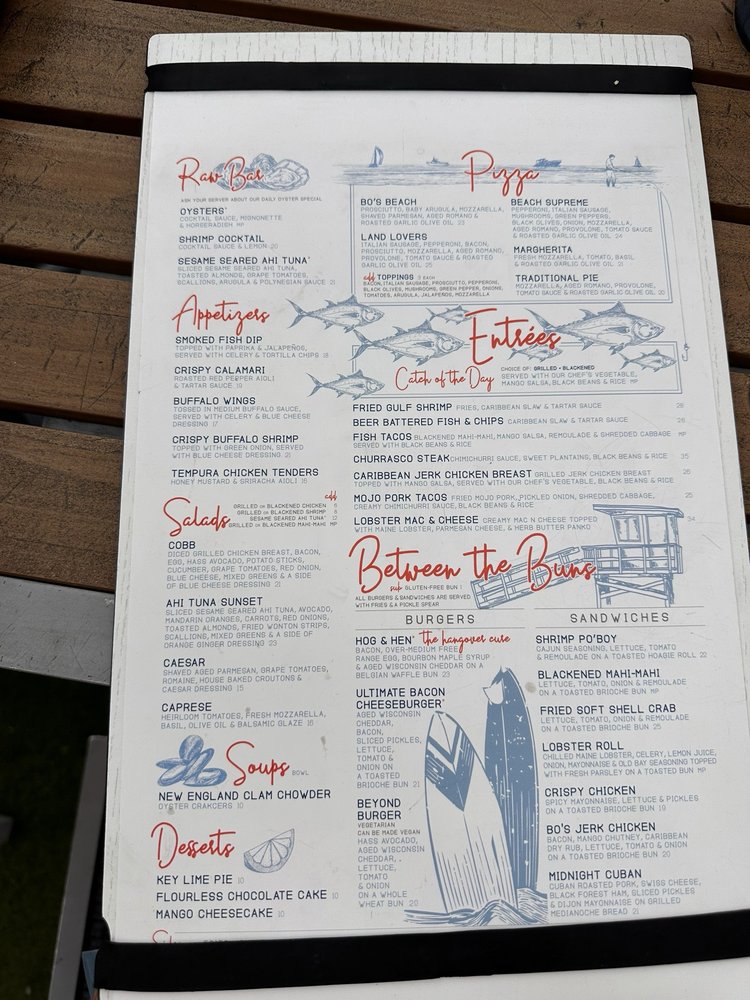 Raw Bar
ASK YOUR SERVER ABOUT OUR DAILY OYSTER SPECIAL
OYSTERS*
COCKTAIL SAUCE, MIGNONETTE
& HORSERADISH MP
SHRIMP COCKTAIL
COCKTAIL SAUCE & LEMON 20
SESAME SEARED AHI TUNA*
SLICED SESAME SEARED AHI TUNA,
TOASTED ALMONDS, GRAPE TOMATOES,
SCALLIONS, ARUGULA & POLYNESIAN SAUCE 21
Appetizers
SMOKED FISH DIP
TOPPED WITH PAPRIKA & JALAPEÑOS,
SERVED WITH CELERY & TORTILLA CHIPS 18
CRISPY CALAMARI
ROASTED RED PEPPER AIOLI
& TARTAR SAUCE 19
BUFFALO WINGS
TOSSED IN MEDIUM BUFFALO SAUCE,
SERVED WITH CELERY & BLUE CHEESE
DRESSING 17
CRISPY BUFFALO SHRIMP
TOPPED WITH GREEN ONION, SERVED
WITH BLUE CHEESE DRESSING 21
TEMPURA CHICKEN TENDERS
HONEY MUSTARD & SRIRACHA AIOLI 16
Salads
add
GRILLED OR BLACKENED CHICKEN 6
GRILLED OR BLACKENED SHRIMP 8
SESAME SEARED AHI TUNA* 12
GRILLED OR BLACKENED MAHI-MAHI MP
COBB
DICED GRILLED CHICKEN BREAST, BACON,
EGG, HASS AVOCADO, POTATO STICKS,
CUCUMBER, GRAPE TOMATOES, RED ONION,
BLUE CHEESE, MIXED GREENS & A SIDE
OF BLUE CHEESE DRESSING 21
AHI TUNA SUNSET
SLICED SESAME SEARED AHI TUNA, AVOCADO,
MANDARIN ORANGES, CARROTS, RED ONIONS,
TOASTED ALMONDS, FRIED WONTON STRIPS,
SCALLIONS, MIXED GREENS & A SIDE OF
ORANGE GINGER DRESSING 23
CAESAR
SHAVED AGED PARMESAN, GRAPE TOMATOES,
ROMAINE, HOUSE BAKED CROUTONS &
CAESAR DRESSING 15
CAPRESE
HEIRLOOM TOMATOES, FRESH MOZZARELLA,
BASIL, OLIVE OIL & BALSAMIC GLAZE 16
Soups BOWL
NEW ENGLAND CLAM CHOWDER
OYSTER CRACKERS 10
Desserts
KEY LIME PIE 10
FLOURLESS CHOCOLATE CAKE 10
MANGO CHEESECAKE 10
Pizza
BO'S BEACH
PROSCIUTTO, BABY ARUGULA, MOZZARELLA,
SHAVED PARMESAN, AGED ROMANO &
ROASTED GARLIC OLIVE OIL 23
LAND LOVERS
ITALIAN SAUSAGE, PEPPERONI, BACON,
PROSCIUTTO, MOZZARELLA, AGED ROMANO,
PROVOLONE, TOMATO SAUCE & ROASTED
GARLIC OLIVE OIL 25
add TOPPINGS 3 EACH
BACON, ITALIAN SAUSAGE, PROSCIUTTO, PEPPERONI,
BLACK OLIVES, MUSHROOMS, GREEN PEPPER, ONIONS,
TOMATOES, ARUGULA, JALAPEÑOS, MOZZARELLA
BEACH SUPREME
PEPPERONI, ITALIAN SAUSAGE,
MUSHROOMS, GREEN PEPPERS,
BLACK OLIVES, ONION, MOZZARELLA,
AGED ROMANO, PROVOLONE, TOMATO SAUCE
& ROASTED GARLIC OLIVE OIL 24
MARGHERITA
FRESH MOZZARELLA, TOMATO, BASIL
& ROASTED GARLIC OLIVE OIL 21
TRADITIONAL PIE
MOZZARELLA, AGED ROMANO, PROVOLONE,
TOMATO SAUCE & ROASTED GARLIC OLIVE OIL 20
Entrées
Catch of the Day
CHOICE OF: GRILLED • BLACKENED
SERVED WITH OUR CHEF'S VEGETABLE,
MANGO SALSA, BLACK BEANS & RICE MP
FRIED GULF SHRIMP FRIES, CARIBBEAN SLAW & TARTAR SAUCE 26
BEER BATTERED FISH & CHIPS CARIBBEAN SLAW & TARTAR SAUCE 26
FISH TACOS BLACKENED MAHI-MAHI, MANGO SALSA, REMOULADE & SHREDDED CABBAGE MP
SERVED WITH BLACK BEANS & RICE
CHURRASCO STEAK CHIMICHURRI SAUCE, SWEET PLANTAINS, BLACK BEANS & RICE 35
CARIBBEAN JERK CHICKEN BREAST GRILLED JERK CHICKEN BREAST 25
TOPPED WITH MANGO SALSA, SERVED WITH OUR CHEF'S VEGETABLE, BLACK BEANS & RICE
MOJO PORK TACOS FRIED MOJO PORK, PICKLED ONION, SHREDDED CABBAGE, 25
CREAMY CHIMICHURRI SAUCE, BLACK BEANS & RICE
LOBSTER MAC & CHEESE CREAMY MAC N CHEESE TOPPED 34
WITH MAINE LOBSTER, PARMESAN CHEESE, & HERB BUTTER PANKO
Between the Buns
sub GLUTEN-FREE BUN 1
ALL BURGERS & SANDWICHES ARE SERVED
WITH FRIES & A PICKLE SPEAR
BURGERS
HOG & HEN* the hangover cure
BACON, OVER-MEDIUM FREE
RANGE EGG, BOURBON MAPLE SYRUP
& AGED WISCONSIN CHEDDAR ON A
BELGIAN WAFFLE BUN 23
ULTIMATE BACON
CHEESEBURGER*
AGED WISCONSIN
CHEDDAR,
BACON,
SLICED PICKLES,
LETTUCE,
TOMATO &
ONION ON
A TOASTED
BRIOCHE BUN 21
BEYOND
BURGER
VEGETARIAN
CAN BE MADE VEGAN
HASS AVOCADO,
AGED WISCONSIN
CHEDDAR, .
LETTUCE,
TOMATO
& ONION
ON A WHOLE
WHEAT BUN 20
SANDWICHES
SHRIMP PO'BOY
CAJUN SEASONING, LETTUCE, TOMATO
& REMOULADE ON A TOASTED HOAGIE ROLL 22
BLACKENED MAHI-MAHI
LETTUCE, TOMATO, ONION & REMOULADE
ON A TOASTED BRIOCHE BUN MP
FRIED SOFT SHELL CRAB
LETTUCE, TOMATO, ONION & REMOULADE
ON A TOASTED BRIOCHE BUN 25
LOBSTER ROLL
CHILLED MAINE LOBSTER, CELERY, LEMON JUICE,
ONION, MAYONNAISE & OLD BAY SEASONING TOPPED
WITH FRESH PARSLEY ON A TOASTED BUN MP
CRISPY CHICKEN
SPICY MAYONNAISE, LETTUCE & PICKLES
ON A TOASTED BRIOCHE BUN 19
BO'S JERK CHICKEN
BACON, MANGO CHUTNEY, CARIBBEAN
DRY RUB, LETTUCE, TOMATO & ONION
ON A TOASTED BRIOCHE BUN 20
MIDNIGHT CUBAN
CUBAN ROASTED PORK, SWISS CHEESE,
BLACK FOREST HAM, SLICED PICKLES
& DIJON MAYONNAISE ON GRILLED
MEDIANOCHE BREAD 21